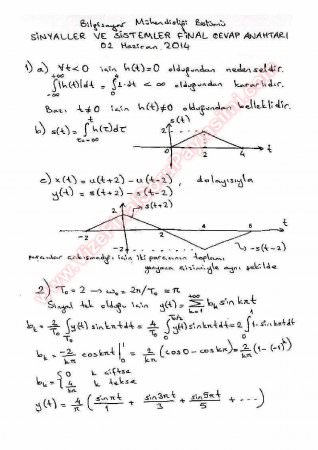 Bilgisayar Mühendisliği Bölümü
SİNYALLER VE SİSTEMLER FİNAL CEVAP ANAHTARI
02 Haziran 2014
1) a) ∀t<0 için h(t)=0 olduğundan nedenseldir.
∫_{-∞}^{+∞} |h(t)|dt = ∫ 1·dt < ∞ olduğundan kararlıdır.
Bazı t≠0 için h(t)≠0 olduğundan belleklidir.
b) s(t) = ∫_{τ=-∞}^{t} h(τ)dτ
s(t)
2
0 2 4 t
c) x(t) = u(t+2) - u(t-2), dolayısıyla
y(t) = s(t+2) - s(t-2)
s(t+2)
2
-2 2 4 6 t
-2
-s(t-2)
parçalar çakışmadığı için iki parçanın toplamı
yanyana çizimiyle aynı şekilde
2) T₀ = 2 → ω₀ = 2π/T₀ = π
Sinyal tek olduğu için y(t) = Σ_{k=1}^{+∞} b_k sin kπt
b_k = 2/T₀ ∫ y(t) sin kπt dt = 4/T₀ ∫_0^{T₀/2} y(t) sin kπt dt = 2 ∫_0^1 1·sin kπt dt
b_k = -2/kπ cos kπt |_0^1 = 2/kπ (cos 0 - cos kπ) = 2/kπ (1-(-1)^k)
b_k = { 0 k çiftse
4/kπ k tekse
y(t) = 4/π ( sin πt/1 + sin 3πt/3 + sin 5πt/5 + ... )